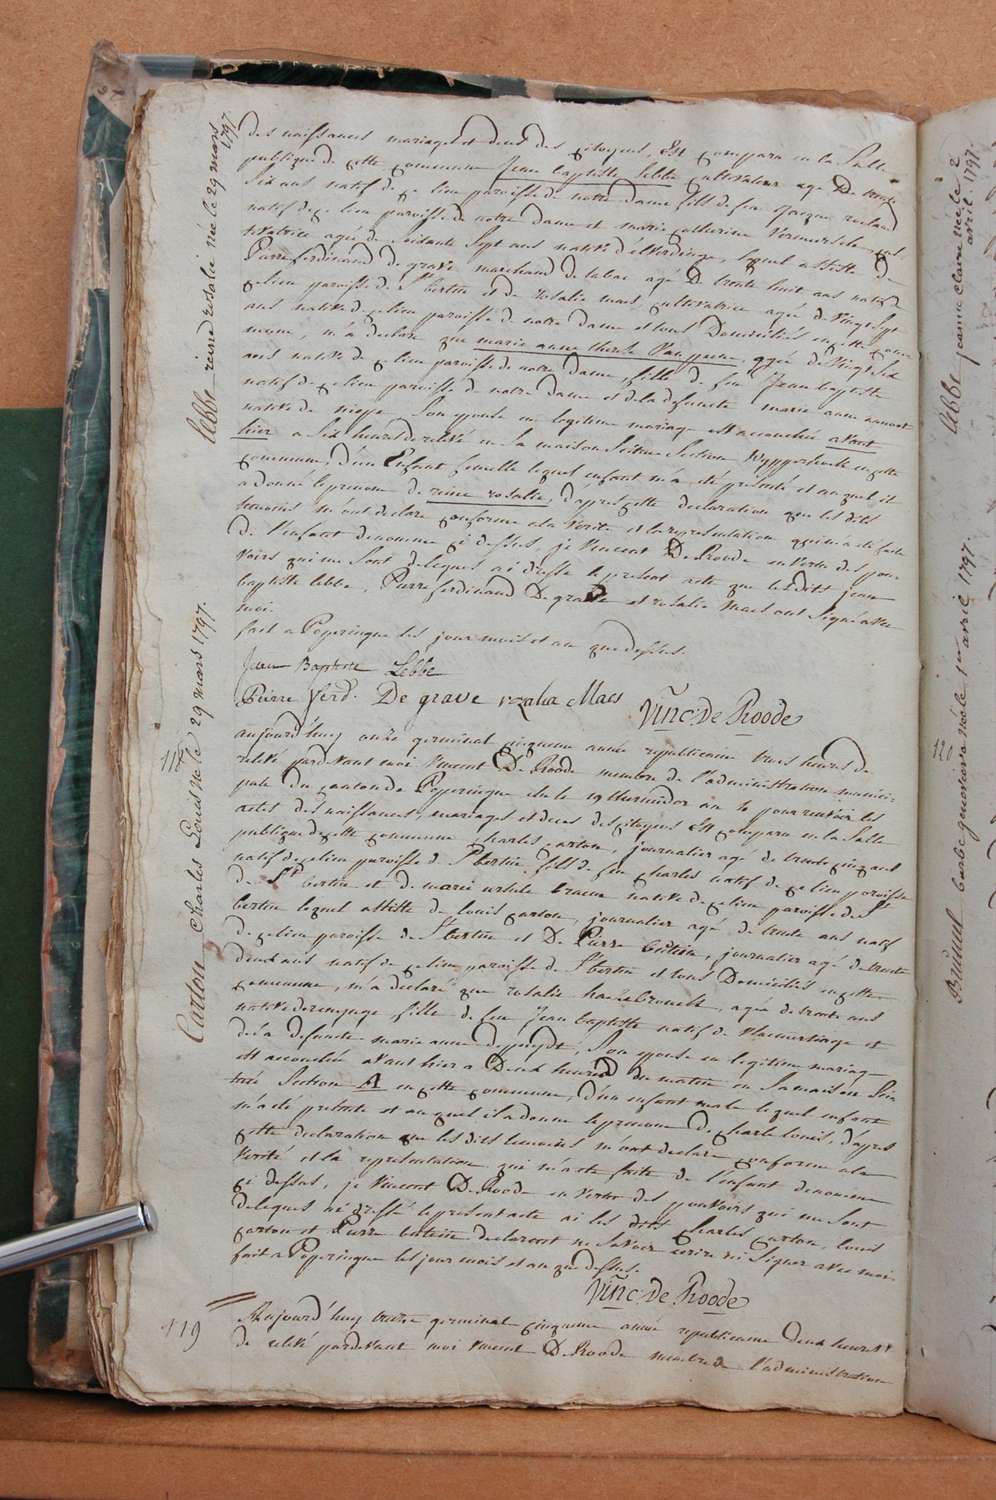 des naissances mariages et deces des citoyens, Est comparu en la Salle
publique de cette commune Jean baptiste lebbe cultivateur agé De trente
Six ans natif de ce lieu paroisse de notre dame fils de feu Jacque
natif de ce lieu paroisse de notre dame et marie catherine Vermeersch
tivatrice agée de soixante Sept ans native d'elverdinge, lequel assisté de
Pierre ferdinand de grave marchand de tabac agé De trente huit ans natif de
ce lieu paroisse de St bertin et de rosalie maes cultivatrice agée de vingt Sept
ans native de ce lieu paroisse de notre dame et tous Domiciliés en cette com
mune, m'a declaré que marie anne therese agée de Vingt Six
ans native de ce lieu paroisse de notre dame fille de feu Jean baptiste
natif de ce lieu paroisse de notre dame et de la defuncte marie anne
native de Son epouse en legitime mariage est accouchée avant
hier a Six heures de relevé en Sa maison Scitue Section en cette
commune, d'un Enfant femelle lequel enfant m'a été présenté et au quel il
a donné le prenom de reine rosalie, d'apres cette declaration que les dits
temoins m'ont declaré conforme a la Verité et la representation qui m'a été faite
de l'enfant denommé ci dessus, je Vincent De Roode en Vertu des pou
voirs qui me Sont delegues ai dressé le present acte que les dits jean
baptiste lebbe, Pierre ferdinand De grave et rosalie Maes ont Signé avec
moi.
fait a Poperingue les jour mois et an que dessus.
Jean Baptiste Lebbe
Pierre ferd. De grave rozalia Maes Vinc: De Roode
aujourd'huy onze germinal cinquieme année republicaine trois heures de
relevé pardevant moi Vincent De Roode membre de l'administration munici
pale du canton de Poperingue elu le 19 thermidor an 4 pour recevoir les
actes des naissances, mariages et deces des citoyens Est comparu en la Salle
publique de cette commune charles carton, journalier agé de trente cinq ans
natif de ce lieu paroisse de St bertin fils de feu charles natif de ce lieu paroisse
de St bertin et de marie ursule native de ce lieu paroisse de St
bertin lequel assisté de louis carton, journalier agé, de trente ans natif
de ce lieu paroisse de St bertin et De Pierre journalier agé de trente
deux ans natif de ce lieu paroisse de St bertin et tous Domiciliés en cette
commune, m'a declaré que rosalie agée de trente ans
native de fille de feu Jean baptiste natif de Vlamertinge et
de la defuncte marie anne Son epouse en legitime mariage
est accouchée avant hier a Deux heures du matin en Sa maison Sci
tuée Section A en cette commune, d'un enfant male lequel enfant
m'a été présenté et au quel il a donné le prenom De charle louis, d'apres
cette declaration que les dits temoins m'ont declaré conforme a la
Verité et la représentation qui m'a été faite de l'enfant denommé
ci dessus, je Vincent De Roode en Vertu des pouvoirs qui me Sont
delegues ai dressé le present acte ai les dits Charles carton, louis
carton et Pierre declarent ne Savoir ecrire ni Signer avec moi.
fait a Poperingue les jour mois et an que dessus.
Vinc: De Roode
Aujourd'huy treize germinal cinquieme année republicaine deux heures
de relevé pardevant moi Vincent De Roode membre de l'administration
lebbe reine rosalie née le 29 mars 1797
Carton Charles Louis né le 29 mars 1797.
119
lebbe jeanne claire née le 2
avril 1797.
né le 1er avril 1797.